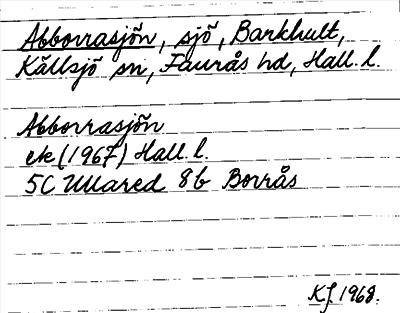 Abborrasjön, sjö, Barkhult,
Källsjö sn, Faurås hd, Hall. l.
Abborrasjön
ek (1967) Hall. l.
5C Ullared 8b Borrås
KJ 1968.